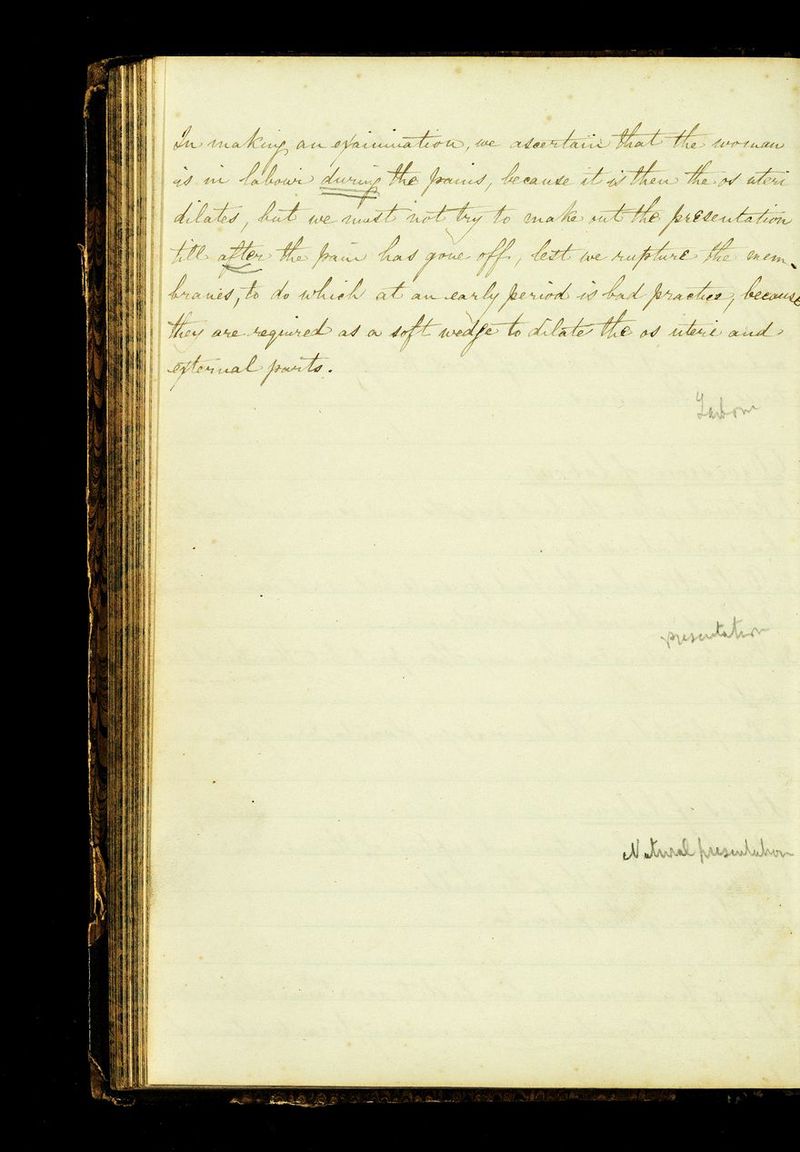 In making an examination, we ascertain that the woman
is in labour during the pains, because it is then the os uteri
dilates, but we must not try to make out the presentation
till after the pain has gone off, lest we rupture the mem-
branes, to do which at an early period is bad practice, because
they are required as a soft wedge to dilate the os uteri and
external parts.
Labour
presentation
Natural presentation